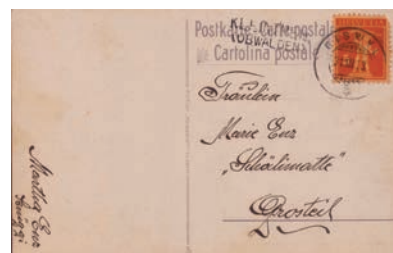 Postkarte - Carte postale
Cartolina postale
(OBWALDEN)
Fräulein
Marie Enz
„Schälimatte“
Grosteil
Martha Enz